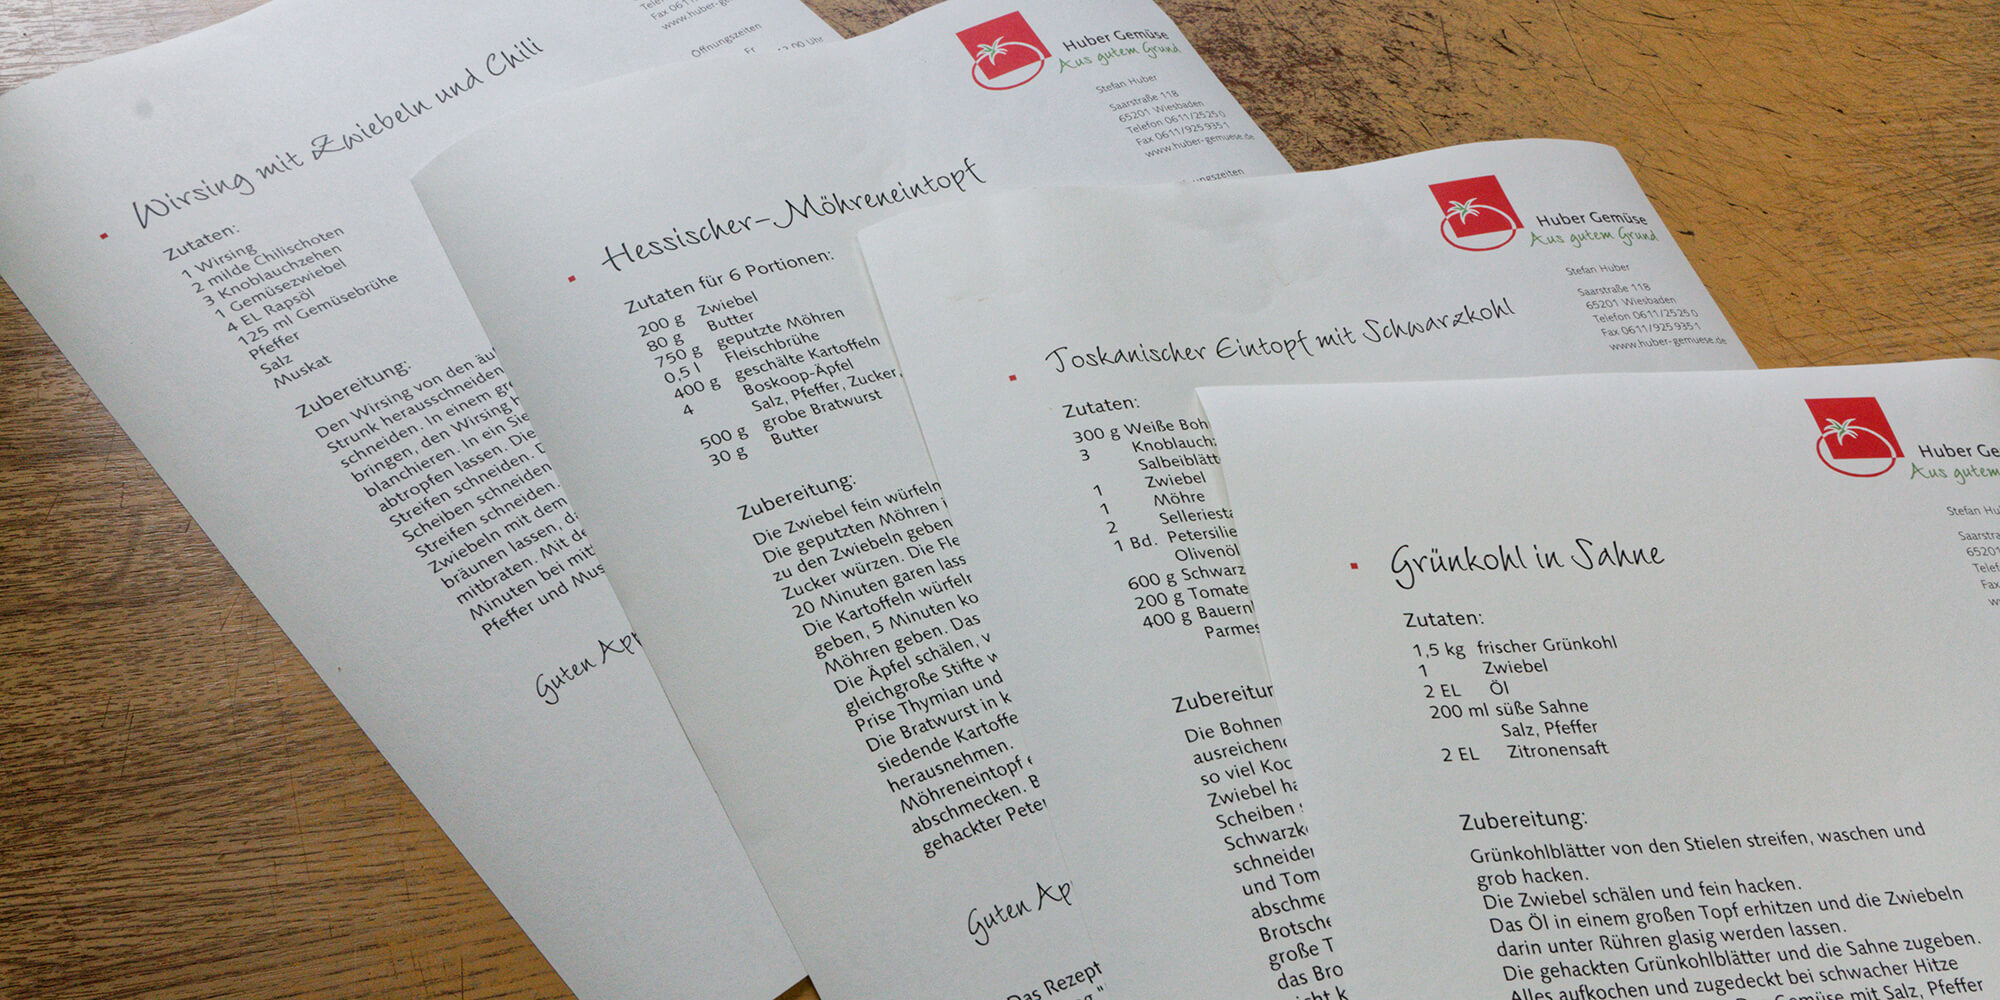 Wirsing mit Zwiebeln und Chili
Zutaten:
1 Wirsing
2 milde Chilischoten
3 Knoblauchzehen
1 Gemüsezwiebel
4 EL Rapsöl
125 ml Gemüsebrühe
Pfeffer
Salz
Muskat
Zubereitung:
Den Wirsing von den
Strunk herausschneiden
schneiden. In einem
bringen, den Wirsing
blanchieren. In ein
abtropfen lassen. Die
Streifen schneiden.
Scheiben schneiden
Streifen schneiden.
Zwiebeln mit dem
bräunen lassen,
mitbraten. Mit
Minuten bei
Pfeffer und
Guten
Fax
www.huber-
Öffnungszeiten
Uhr
Huber Gemüse
Aus gutem Grund
Stefan Huber
Saarstraße 118
65201 Wiesbaden
Telefon 0611/25250
Fax 0611/9259351
www.huber-gemuese.de
Hessischer-Möhreneintopf
Zutaten für 6 Portionen:
200 g Zwiebel
80 g Butter
750 g geputzte Möhren
0,5 l Fleischbrühe
400 g geschälte Kartoffeln
4 Boskoop-Äpfel
Salz, Pfeffer, Zucker,
500 g grobe Bratwurst
30 g Butter
Zubereitung:
Die Zwiebel fein würfeln
Die geputzten Möhren
zu den Zwiebeln geben
Zucker würzen. Die
20 Minuten garen
Die Kartoffeln
geben, 5 Minuten
Möhren geben. Das
Die Äpfel schälen,
gleichgroße Stifte
Prise Thymian und
Die Bratwurst in
siedende
herausnehmen.
Möhreneintopf
abschmecken.
gehackter
Guten
Das Rezept
Huber Gemüse
Aus gutem Grund
Stefan Huber
Saarstraße 118
65201 Wiesbaden
Telefon 0611/25250
Fax 0611/9259351
www.huber-gemuese.de
Toskanischer Eintopf mit Schwarzkohl
Zutaten:
300 g Weiße
3
1 Zwiebel
1 Möhre
2
1 Bd. Petersilie
Olivenöl
600 g
200 g
400 g
Die Bohnen
so viel
Zwiebel
Scheiben
und
große
das
Huber
Aus gutem
Stefan
Grünkohl in Sahne
Zutaten:
1,5 kg frischer Grünkohl
1 Zwiebel
2 EL Öl
200 ml süße Sahne
Salz, Pfeffer
2 EL Zitronensaft
Zubereitung:
Grünkohlblätter von den Stielen streifen, waschen und
grob hacken.
Die Zwiebel schälen und fein hacken.
Das Öl in einem großen Topf erhitzen und die Zwiebeln
darin unter Rühren glasig werden lassen.
Die gehackten Grünkohlblätter und die Sahne zugeben.
Alles aufkochen und zugedeckt bei schwacher Hitze
Gemüse mit Salz, Pfeffer